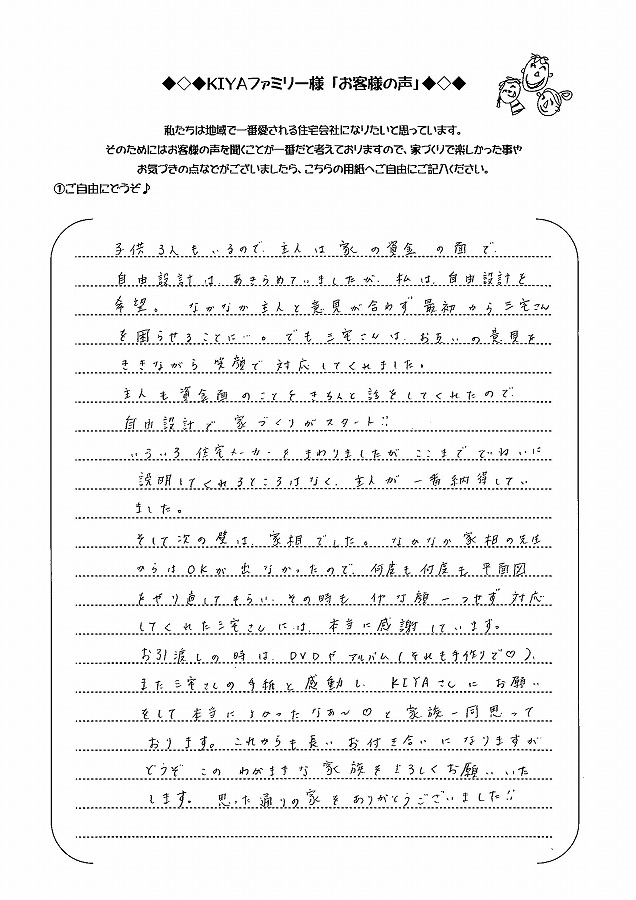 ◆◇◆KIYAファミリー様「お客様の声」◆◇◆
私たちは地域で一番愛される住宅会社になりたいと思っています。
そのためにはお客様の声を聞くことが一番だと考えておりますので、家づくりで楽しかった事や
お気づきの点などがございましたら、こちらの用紙へご自由にご記入ください。
①ご自由にどうぞ♪
子供3人もいるので、主人は家の資金の面で、
自由設計は、あきらめていましたが、私は、自由設計を
希望。 なかなか主人と意見が合わず最初から三宅さん
を困らせることに…。でも三宅さんは、お互いの意見を
ききながら笑顔で対応してくれました。
主人も資金面のことをきちんと話をしてくれたので
自由設計で家づくりがスタート!!
いろいろ住宅メーカーをまわりましたがここまでていねいに
説明してくれるところはなく、主人が一番納得してい
ました。
そして次の壁は、家相でした。なかなか家相の先生
からはOKが出なかったので、何度も何度も平面図
をやり直してもらい、その時もイヤな顔一つせず対応
してくれた三宅さんには、本当に感謝しています。
お引渡しの時は、DVDやアルバム(それも手作りで♡)、
また三宅さんの手紙と感動し、KIYAさんにお願い
そして本当によかったなぁ～♡と家族一同思って
おります。これからも長いお付き合いになりますが
どうぞこのわがままな家族をよろしくお願いいた
します。 思った通りの家をありがとうございました!!